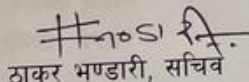 ठाकर भण्डारी, सचिव